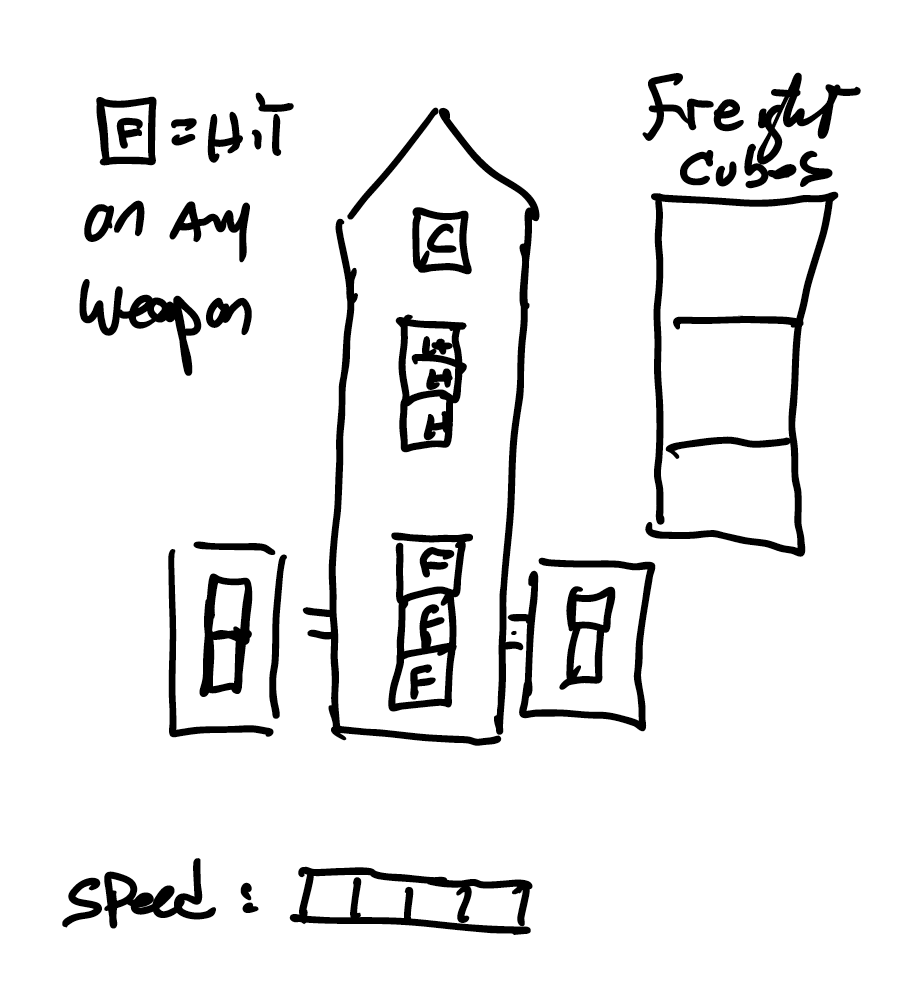 F = HiT
on Any
Weapon
Freight
Cubes
C
H
H
H
F
F
F
Speed: